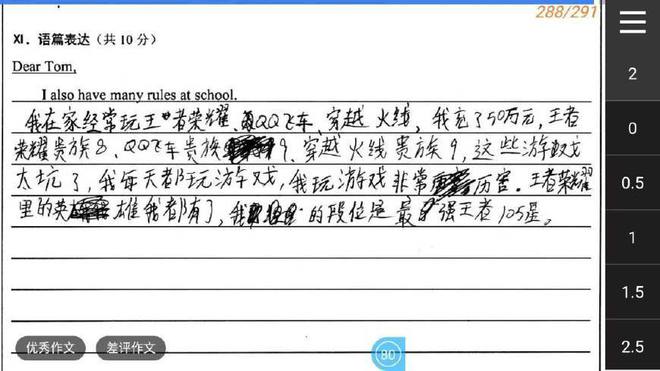 288/291
XI. 语篇表达（共 10 分）
Dear Tom,
I also have many rules at school.
我在家经常玩王者荣耀、QQ飞车、穿越火线，我充了50万元，王者
荣耀贵族8、QQ飞车贵族9、穿越火线贵族9，这些游戏
太坑了，我每天都玩游戏，我玩游戏非常历害。王者荣耀
里的英雄我都有了，我的段位是最强王者105星。
优秀作文
差评作文
80
2
0
0.5
1
1.5
2.5